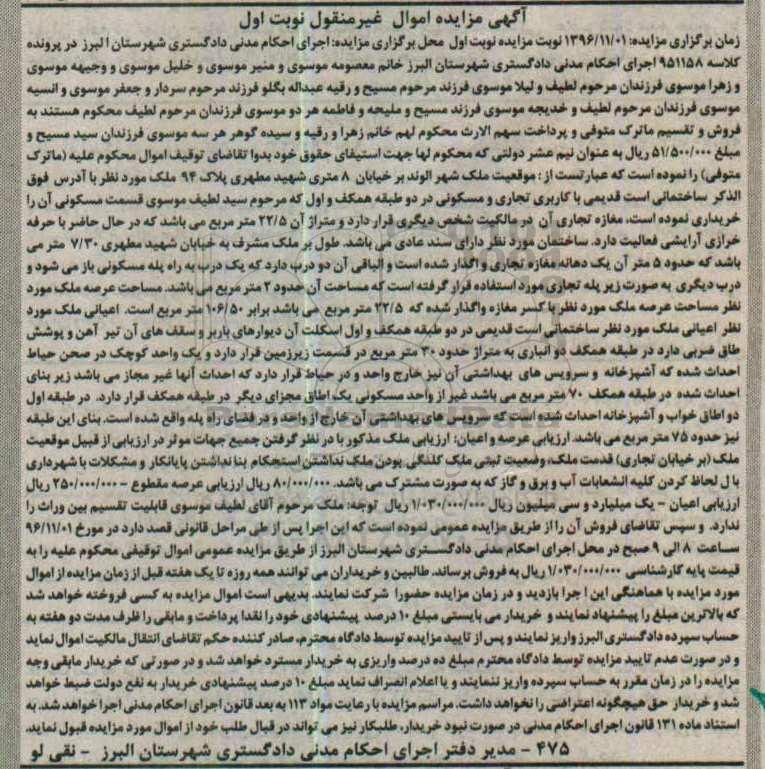 آگهی مزایده اموال غیرمنقول نوبت اول
زمان برگزاری مزایده: ۱۳۹۶/۱۱/۰۱ نوبت مزایده نوبت اول محل برگزاری مزایده: اجرای احکام مدنی دادگستری شهرستان البرز در پرونده
کلاسه ۹۵۱۱۵۸ اجرای احکام مدنی دادگستری شهرستان البرز خانم معصومه موسوی و منیر موسوی و خلیل موسوی و وجیهه موسوی
و زهرا موسوی فرزندان مرحوم لطیف و لیلا موسوی فرزند مرحوم مسیح و رقیه عبداله بگلو فرزند مرحوم سردار و جعفر موسوی و انسیه
موسوی فرزندان مرحوم لطیف و خدیجه موسوی فرزند مسیح و ملیحه و فاطمه هر دو موسوی فرزندان مرحوم لطیف محکوم هستند به
فروش و تقسیم ماترک متوفی و پرداخت سهم الارث محکوم لهم خانم زهرا و رقیه و سیده گوهر هر سه موسوی فرزندان سید مسیح و
مبلغ ۵۱/۵۰۰/۰۰۰ ریال به عنوان نیم عشر دولتی که محکوم لها جهت استیفای حقوق خود بدوا تقاضای توقیف اموال محکوم علیه (ماترک
متوفی) را نموده است که عبارتست از : موقعیت ملک شهر الوند بر خیابان ۸ متری شهید مطهری پلاک ۹۴ ملک مورد نظر با آدرس فوق
الذکر ساختمانی است قدیمی با کاربری تجاری و مسکونی در دو طبقه همکف و اول که مرحوم سید لطیف موسوی قسمت مسکونی آن را
خریداری نموده است، مغازه تجاری آن در مالکیت شخص دیگری قرار دارد و متراژ آن ۲۲/۵ متر مربع می باشد که در حال حاضر با حرفه
خرازی آرایشی فعالیت دارد. ساختمان مورد نظر دارای سند عادی می باشد. طول بر ملک مشرف به خیابان شهید مطهری ۷/۳۰ متر می
باشد که حدود ۵ متر آن یک دهانه مغازه تجاری و اگذار شده است و الباقی آن دو درب دارد که یک درب به راه پله مسکونی باز می شود و
درب دیگری به صورت زیر پله تجاری مورد استفاده قرار گرفته است که مساحت آن حدود ۲ متر مربع می باشد. مساحت عرصه ملک مورد
نظر مساحت عرصه ملک مورد نظر با کسر مغازه واگذار شده که ۲۲/۵ متر مربع می باشد برابر ۱۰۶/۵۰ متر مربع است. اعیانی ملک مورد
نظر اعیانی ملک مورد نظر ساختمانی است قدیمی در دو طبقه همکف و اول اسکلت آن دیوارهای باربر و سقف های آن تیر آهن و پوشش
طاق ضربی دارد در طبقه همکف دو انباری به متراژ حدود ۳۰ متر مربع در قسمت زیرزمین قرار دارد و یک واحد کوچک در صحن حیاط
احداث شده که آشپزخانه و سرویس های بهداشتی آن نیز خارج واحد و در حیاط قرار دارد که احداث آنها غیر مجاز می باشد زیر بنای
احداث شده در طبقه همکف ۷۰ متر مربع می باشد غیر از واحد مسکونی یک اطاق مجزای دیگر در طبقه همکف قرار دارد. در طبقه اول
دو اطاق خواب و آشپزخانه احداث شده است که سرویس های بهداشتی آن خارج از واحد و در فضای راه پله واقع شده است. بنای این طبقه
نیز حدود ۷۵ متر مربع می باشد. ارزیابی عرصه و اعیان: ارزیابی ملک مذکور با در نظر گرفتن جمیع جهات موثر در ارزیابی از قبیل موقعیت
ملک (بر خیابان تجاری) قدمت ملک، وضعیت ثبتی ملک کلنگی بودن ملک نداشتن استحکام بنا نداشتن پایانکار و مشکلات با شهرداری
با ل لحاظ کردن کلیه انشعابات آب و برق و گاز که به صورت مشترک می باشد. ۸۰/۰۰۰/۰۰۰ ریال ارزیابی عرصه مقطوع - ۲۵۰/۰۰۰/۰۰۰ ریال
ارزیابی اعیان - یک میلیارد و سی میلیون ریال ۱/۰۳۰/۰۰۰/۰۰۰ ریال توجه: ملک مرحوم آقای لطیف موسوی قابلیت تقسیم بین وراث را
ندارد. و سپس تقاضای فروش آن را از طریق مزایده عمومی نموده است که این اجرا پس از طی مراحل قانونی قصد دارد در مورخ ۹۶/۱۱/۰۱
ساعت ۸ الی ۹ صبح در محل اجرای احکام مدنی دادگستری شهرستان البرز از طریق مزایده عمومی اموال توقیفی محکوم علیه را به
قیمت پایه کارشناسی ۱/۰۳۰/۰۰۰/۰۰۰ ریال به فروش برساند. طالبین و خریداران می توانند همه روزه تا یک هفته قبل از زمان مزایده از اموال
مورد مزایده با هماهنگی این اجرا بازدید و در زمان مزایده حضورا شرکت نمایند. بدیهی است اموال مزایده به کسی فروخته خواهد شد
که بالاترین مبلغ را پیشنهاد نمایند و خریدار می بایستی مبلغ ۱۰ درصد پیشنهادی خود را نقدا پرداخت و مابقی را ظرف مدت دو هفته به
حساب سپرده دادگستری البرز واریز نمایند و پس از تایید مزایده توسط دادگاه محترم، صادر کننده حکم تقاضای انتقال مالکیت اموال نماید
و در صورت عدم تایید مزایده توسط دادگاه محترم مبلغ ده درصد واریزی به خریدار مسترد خواهد شد و در صورتی که خریدار مابقی وجه
مزایده را در زمان مقرر به حساب سپرده واریز ننمایند و یا اعلام انصراف نماید مبلغ ۱۰ درصد پیشنهادی خریدار به نفع دولت ضبط خواهد
شد و خریدار حق هیچگونه اعتراضی را نخواهد داشت. مراسم مزایده با رعایت مواد ۱۱۳ به بعد قانون اجرای احکام مدنی اجرا خواهد شد. به
استناد ماده ۱۳۱ قانون اجرای احکام مدنی در صورت نبود خریدار، طلبکار نیز می تواند در قبال طلب خود از اموال مورد مزایده قبول نماید.
۴۷۵ - مدیر دفتر اجرای احکام مدنی دادگستری شهرستان البرز - نقی لو